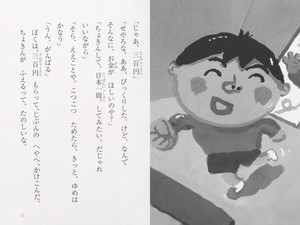 「じゃあ、三百円」
「せやろな。ああ、びっくりした。けど、なんで
そんなに、お金が ほしいのや？」
「ちょきんして、日本一周、してみたい。だじゃれ
いいながら」
「そら、ええことや。こつこつ ためたら、きっと、ゆめは
かなう」
「うん、がんばる」
ぼくは、三百円 もらって、じぶんの へやへ、かけこんだ。
ちょきんが ふえるって、たのしいな。